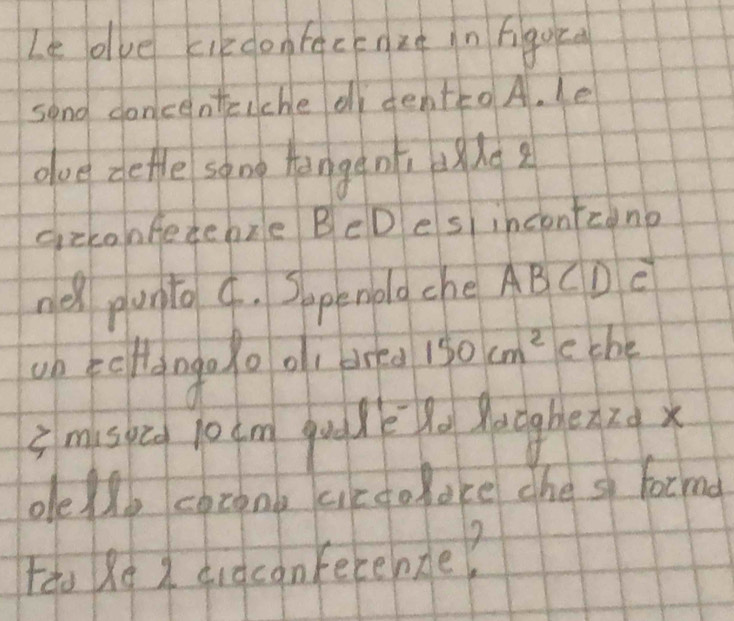 Le due circonferenze in figura
sono concentriche di centro A. Le
due rette sono tangenti alle 2
circonferenze B e D e si incontrano
nel punto C. Sapendo che ABCD è
un rettangolo di area 150 cm² e che
misura 10 cm qual è la larghezza x
della corona circolare che si forma
tra le 2 circonferenze?